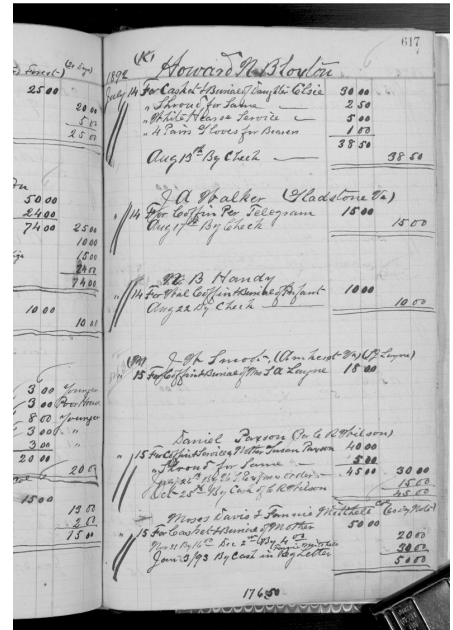 617
(K) Howard N. Bloxton
1892
July 14 For Casket & Burial of Daughter Elsie 30 00
" Shroud for Same 2 50
" White Hearse Service 5 00
" 4 Pairs Gloves for Bearers 1 00
38 50
Aug 13th By Check 38 50
J A Walker (Gladstone Va)
" 14 For Coffin Per Telegram 15 00
Aug 17th By Check 15 00
B Handy
" 14 For Coffin & Burial of Infant 10 00
Aug 22 By Check 10 00
J W Smoot, (Amherst Va)
" 15 For Coffin & Burial of Mrs S A Layne 18 00
Daniel Paxson (Per C R Wilson)
" 15 For Coffin Services Mother Susan Paxson 40 00
" Shroud for Same 5 00
45 00 30 00
15 00
Oct 25th By Cash of C R Wilson
45 00
Moses Davis & Fannie Mitchell
" 15 For Casket & Burial of Mother 50 00
20 00
Jan 3/93 By Cash in Reg Letter 30 00
50 00
176 50
Forest)
25 00
20 00
5 00
25 00
50 00
24 00
74 00 25 00
10 00
15 00
24 00
74 00
10 00
10 00
3 00 Younger
3 00 Poor House
8 00 Younger
3 00 "
3 00 "
20 00
20 00
15 00
13 00
2 00
15 00